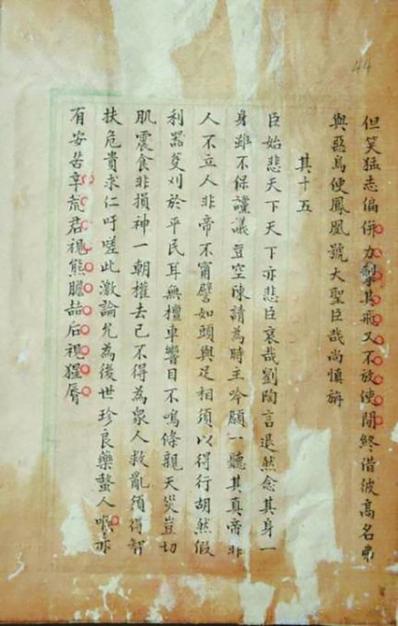 44
但笑猛志偏併力掣其飛又不放使閒終偕彼高名弗
與惡鳥使鳳凰號大聖臣哉尚慎旃
其十五
臣始悲天下天下亦悲臣哀哉劉陶言退然念其身一
身雖不保讜議豈空陳請為時主吟願一聽其真帝非
人不立人非帝不甯譬如頭與足相須以得行胡然假
利器芟刈於平民耳無檀車響目不鳴條親天災豈切
肌震食非損神一朝權去已不得為衆人救亂須得智
扶危貴求仁吁嗟此激論允為後世珍良藥螫人喉亦
有安苦辛荒君視熊膽喆后視猩脣